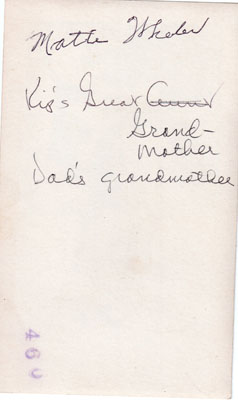 Matte Wheeler
Great Aunt
Grand-
mother
Dad's grandmother
460